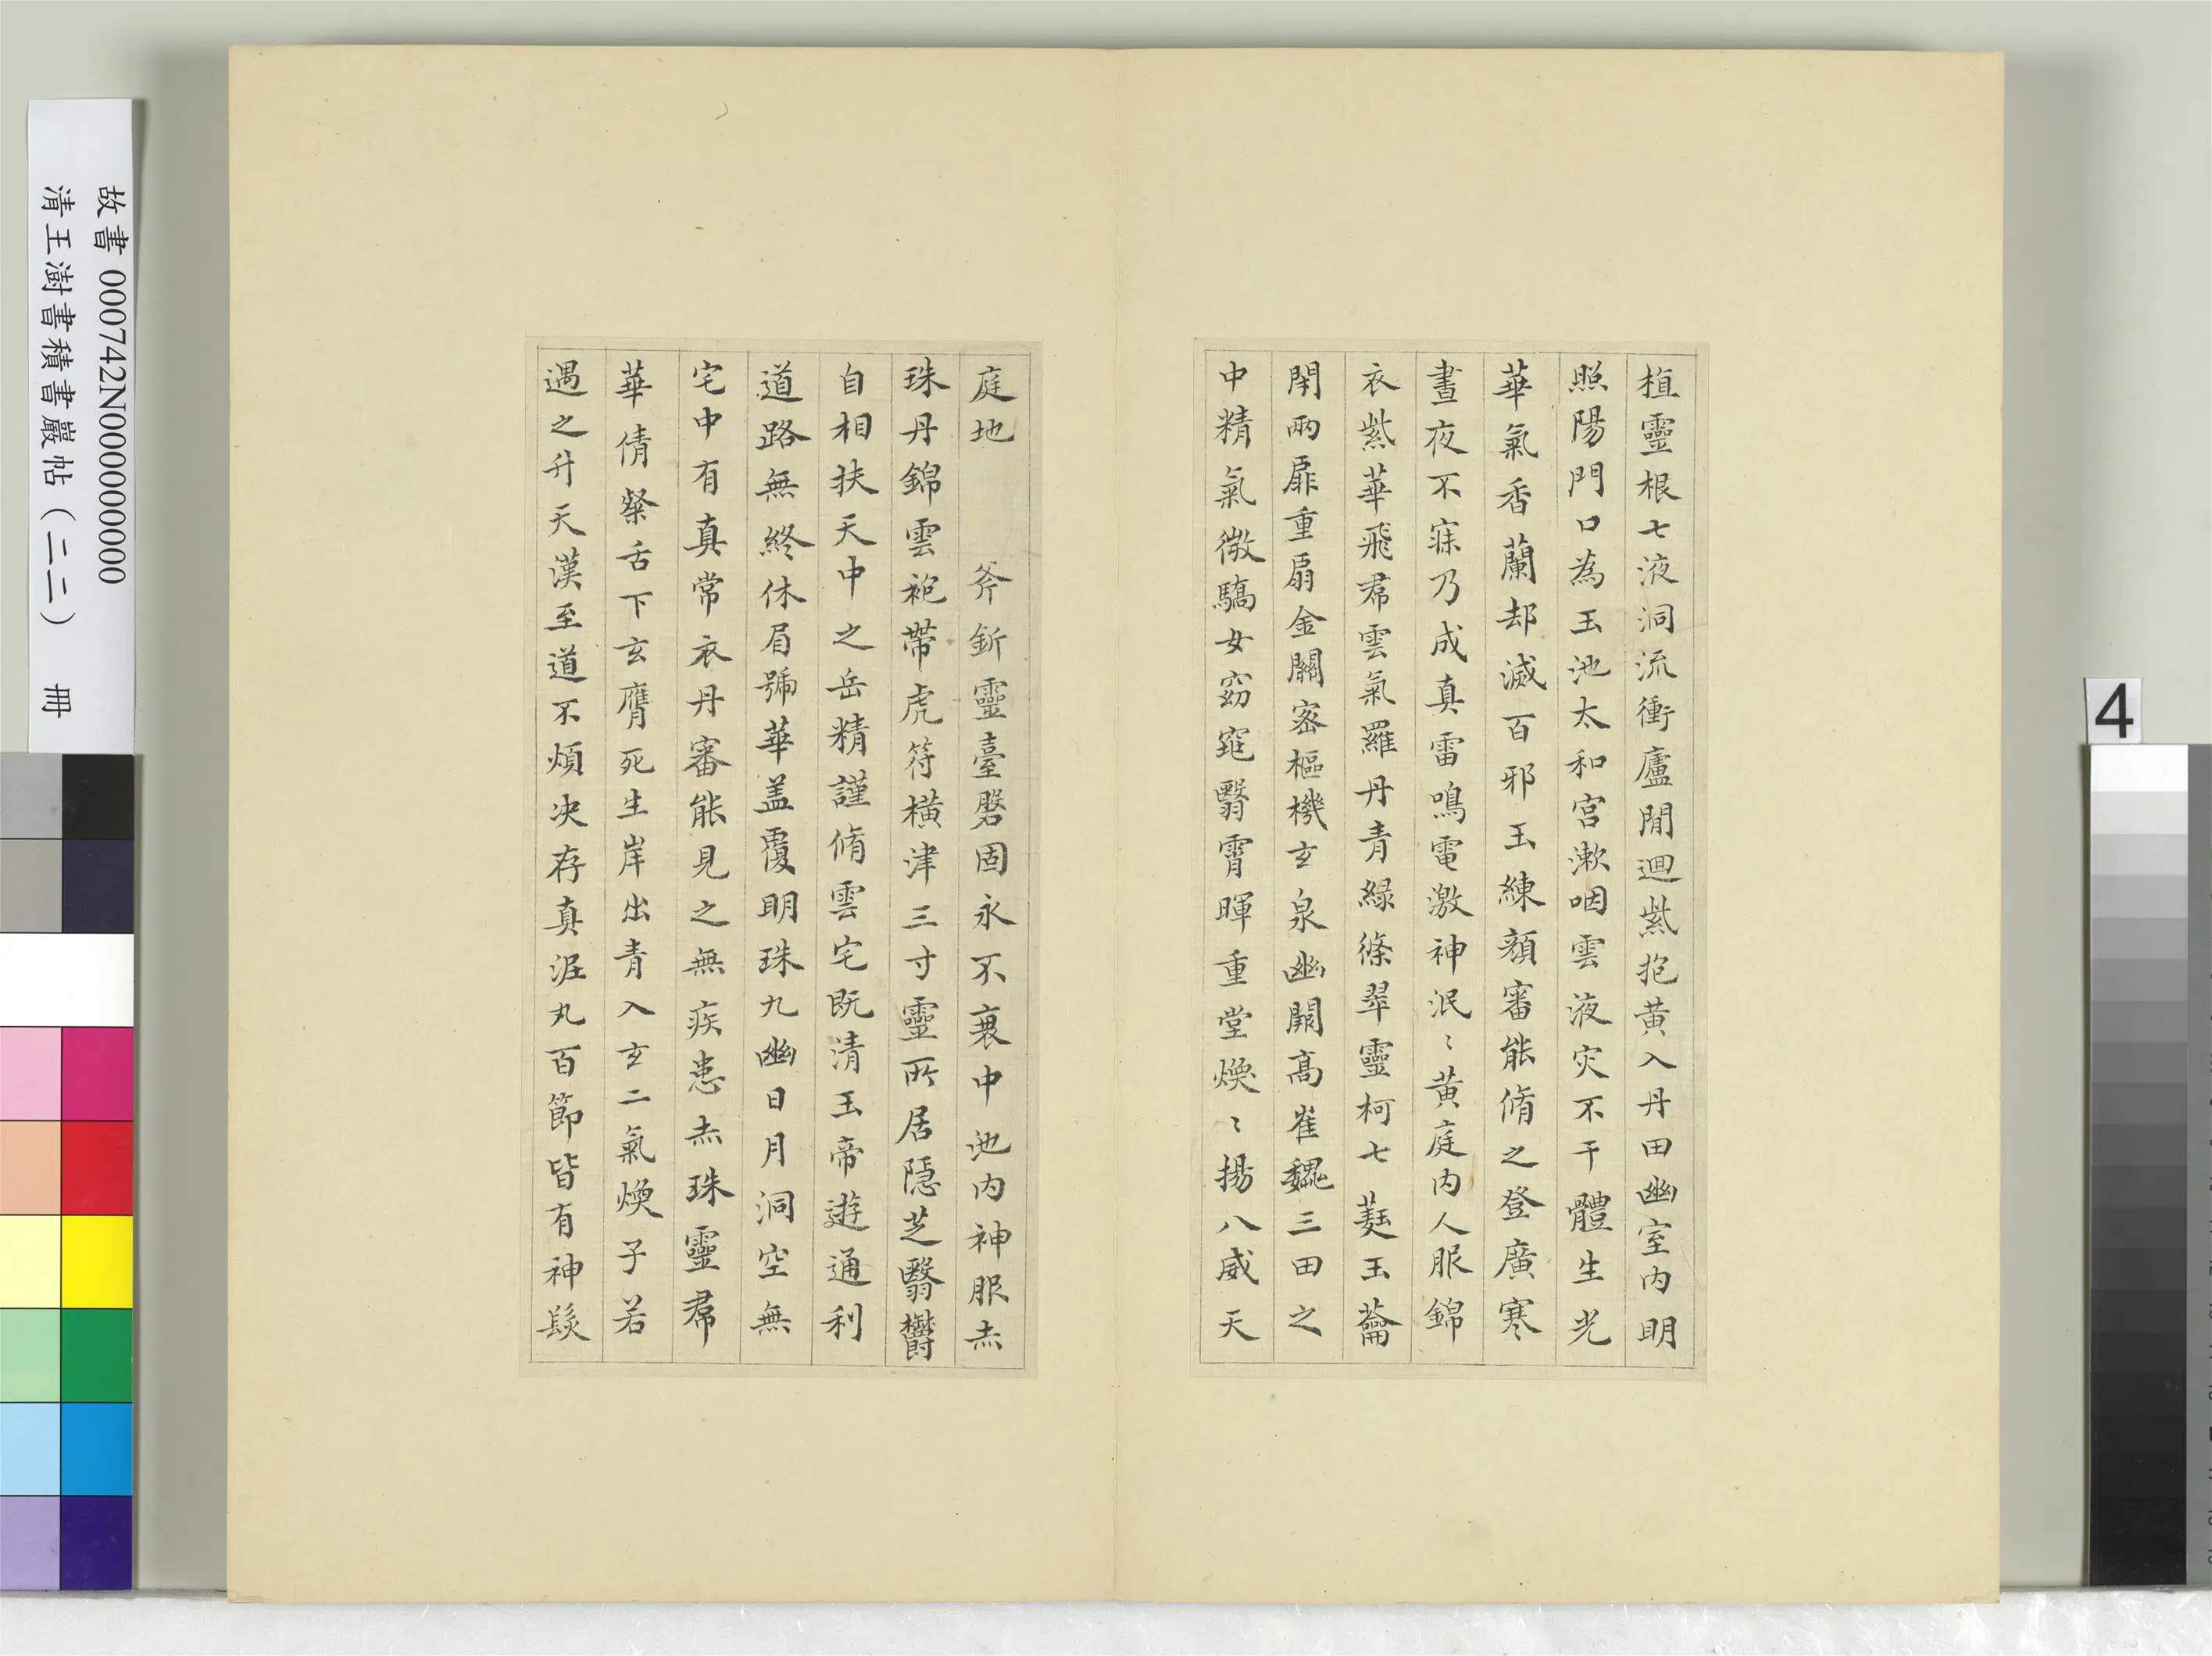 故書 000742N000000000
清王澍書積書巖帖（二二） 冊
4
植靈根七液洞流衝廬閒迴紫抱黃入丹田幽室內明
照陽門口為玉池太和宮漱咽雲液灾不干體生光
華氣香蘭却滅百邪玉練顏審能脩之登廣寒
晝夜不寐乃成真雷鳴電激神泯〻黃庭內人服錦
衣紫華飛帬雲氣羅丹青綠條翠靈柯七蕤玉籥
閉兩扉重扇金關密樞機玄泉幽闕高崔巍三田之
中精氣微驕女窈窕翳霄暉重堂煥〻揚八威天
庭地　斧釿靈臺磐固永不衰中池內神服赤
珠丹錦雲袍帶虎符橫津三寸靈所居隱芝翳鬱
自相扶天中之岳精謹脩雲宅既清玉帝遊通利
道路無終休眉號華盖覆明珠九幽日月洞空無
宅中有真常衣丹審能見之無疾患赤珠靈帬
華倩粲舌下玄膺死生岸出青入玄二氣煥子若
遇之升天漢至道不煩決存真泥丸百節皆有神髮